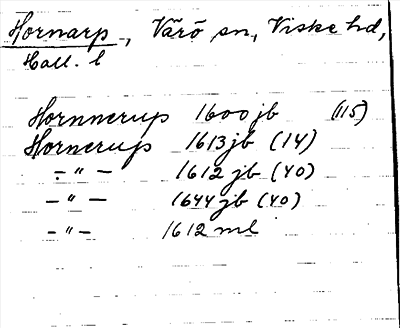 Hornarp, Värö sn, Viske hd,
Hall. l
Hornnerup 1600 jb (115)
Hornerup 1613 jb (14)
- " - 1612 jb (40)
- " - 1644 jb (40)
- " - 1612 ml